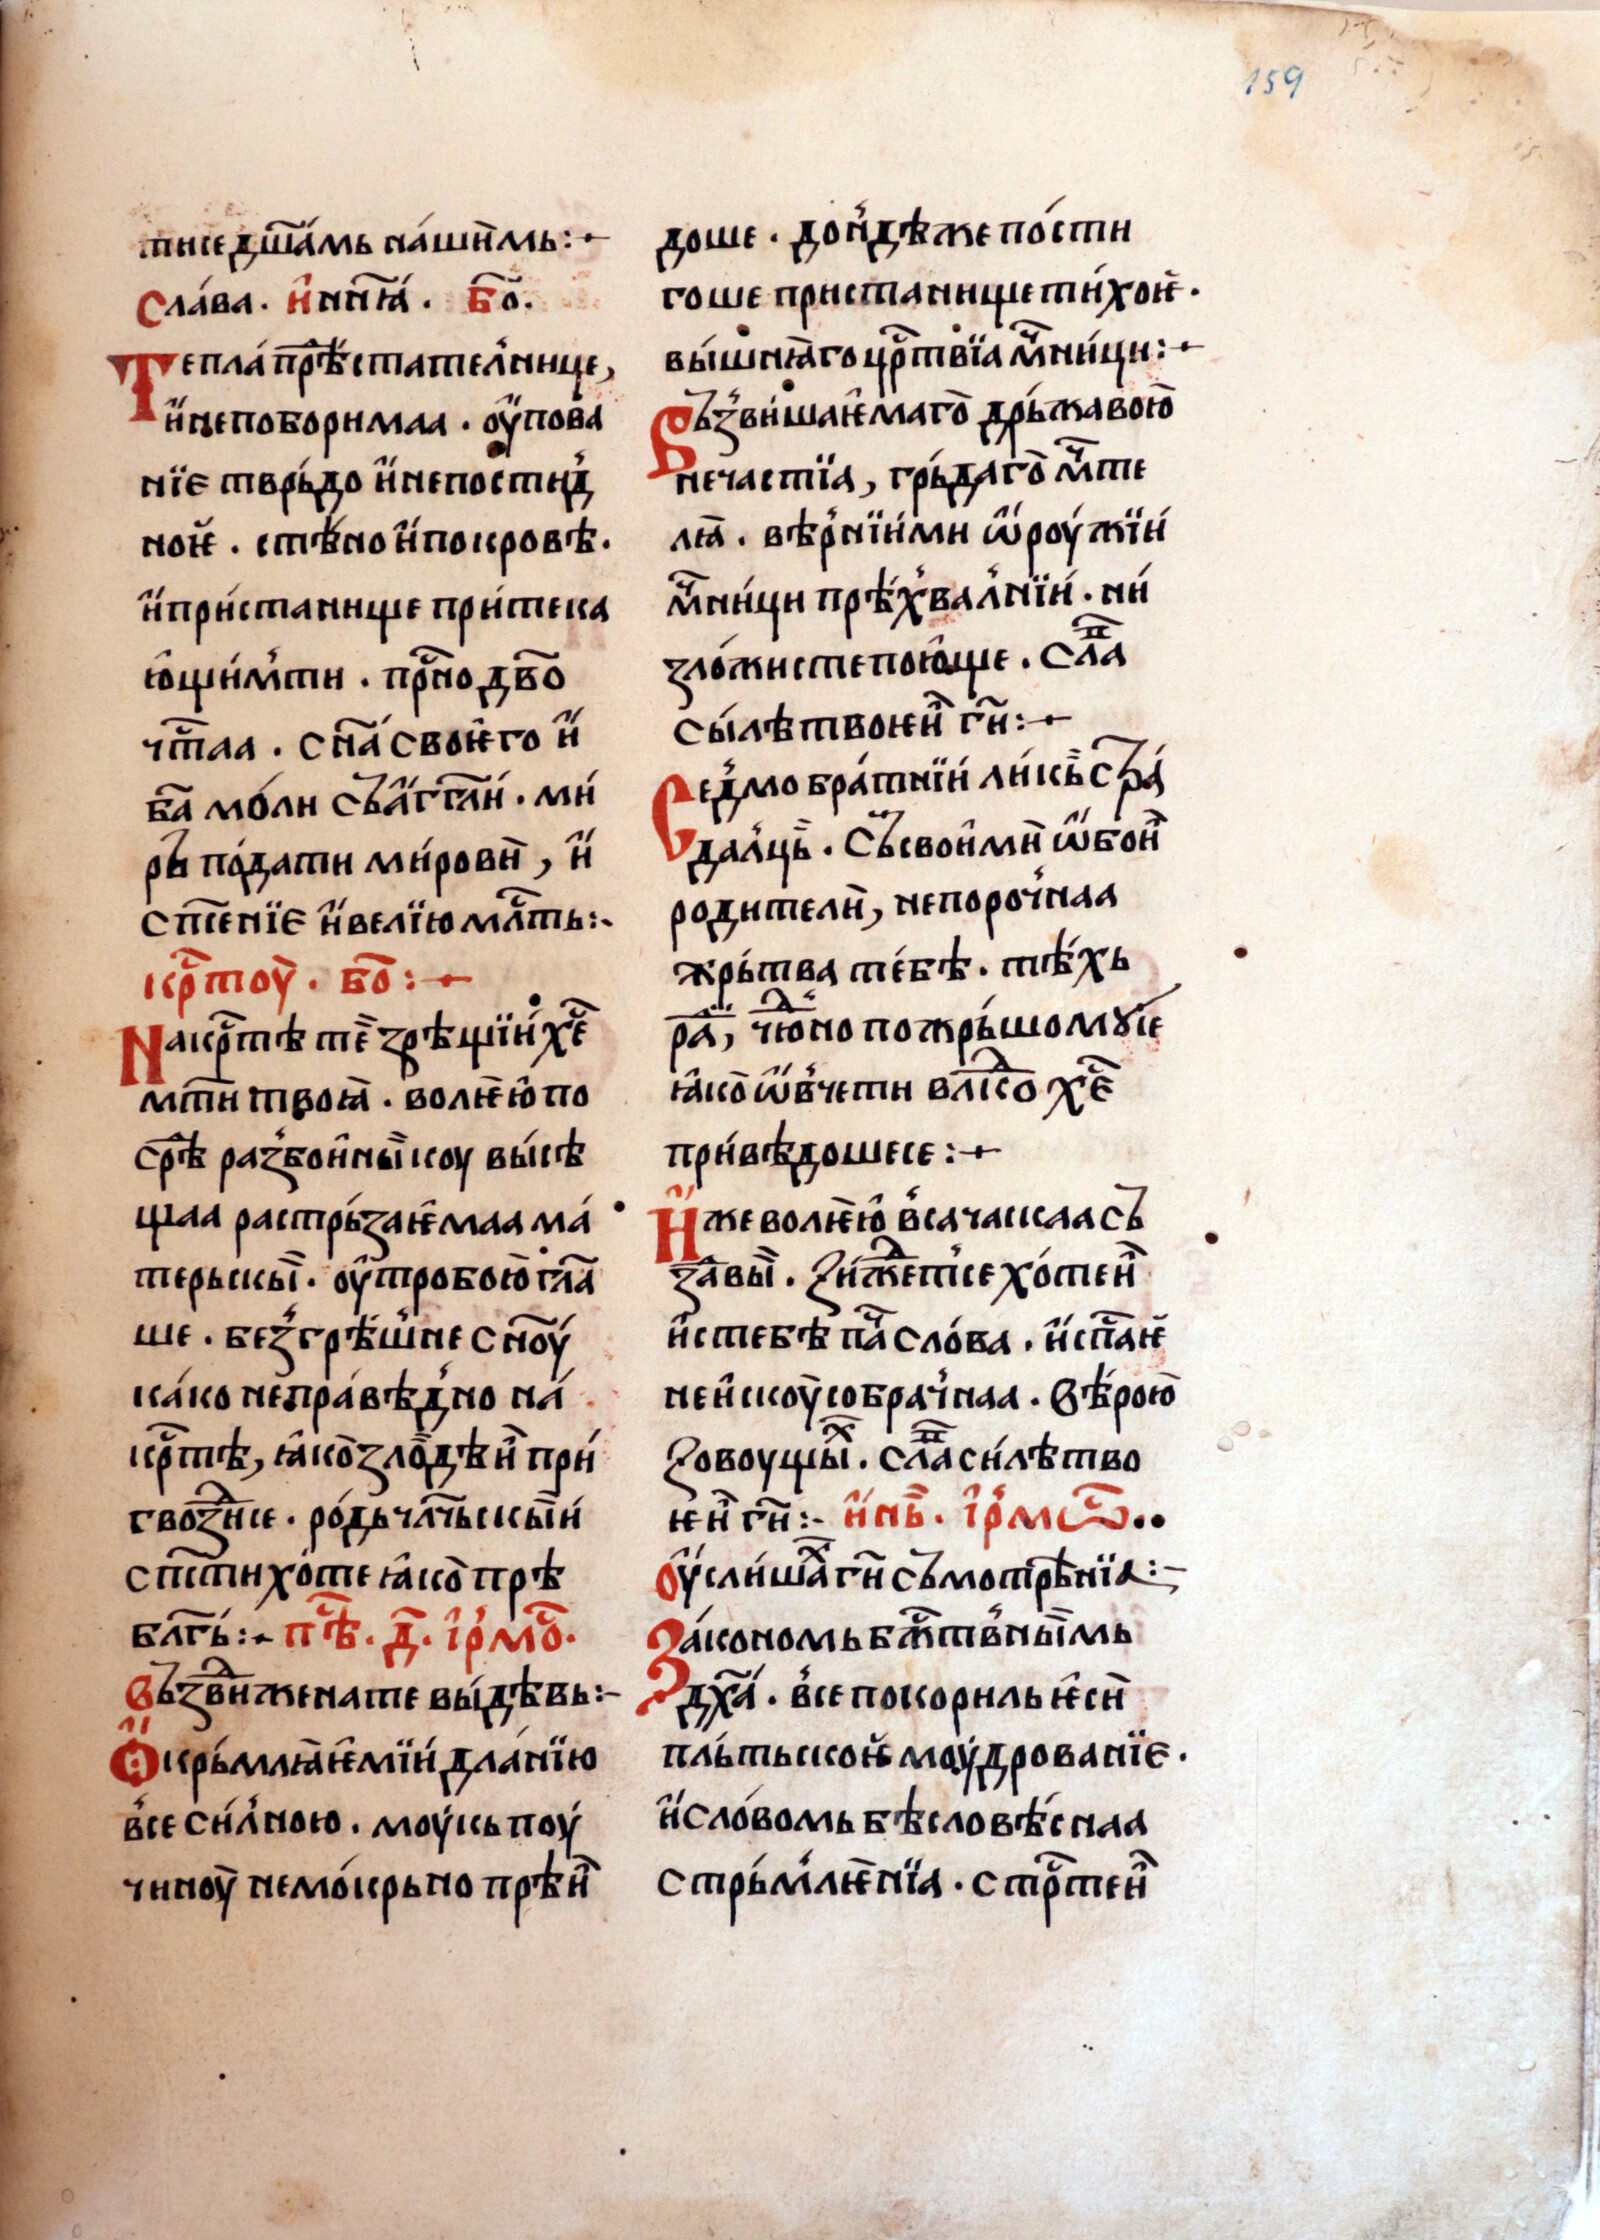 159
тисе дш҃ámь нáшим̀ь :·
слáва · и҆ нн҃ꙗ́ · бо҃ ·
Теплá пр҇ѣ́стателнице,
и҆ непоборимаа · оу҆пова
нїе тврь́до и҆ непостид
ноѥ̀ · стѣ́но и҆ покровѣ ·
и҆ при́станище при́тека
ю҆щи́м ти · пр҇но дв҃о
чт҇аа · сн҃а́ своѥ҆го и҆
ба҃ мо́ли съ а҆гг҃ли́ · ми́
рь́ по́дати ми́ровѝ , и҆
сп҃сенїе и҆ велїю мл҇ть :·
кр҇тоу̀ · бо҃ :·
На кр҇тѣ тѐ зрѣщїи́ хе҃
мт҃и твоꙗ̀ · волѥ́ю҆ по
ср҇ѣ разбои҆ныкоу вы́сѣ
щаа растрь́заѥ҆маа мá
терьскы̀ · оу҆тробою̀ гл҃а
ше · безгрѣ́шне сн҃оу́
кáко непрáвѣдно нá
кр҇тѣ, ꙗ҆ко̀ злодѣѝ при́
гвозднсе · ро́дь чл҃чьскыи́
сп҃сти хо́те ꙗ҆ко̀ прѣ
бл҃гь́ :· пѣ҇ · д҃ · і҆рмо҇ ·
Въздвиженате вы́дѣвь :·
Ѻ҆крь́млꙗ҆ѥ҆мїи́ длáнїю
все си́лною · моу́кь поу́
чиноу̀ немо́крьно прѣѝ
доше · дои́дѣже по́сти
гоше пристанище ти́хоѥ̀ ·
вы́шнꙗ҆го цр҇твїа мч҇ни́ци :·
Възви́шаѥ҆маго̀ дрь́жавою̀
нечастїа, грь́даго̀ мч҇те
лꙗ̀ · вѣрнїи́ми ѡ҆роу́жїи́
мч҇ни́ци прѣ́хвалнїи́ · ни́
зло́жисте пою҆ще · слáв
сы́лѣ твоѥѝ ги҃ :·
Седмобрáтнїи́ ли́кь̀ стрá
далць̀ · съ свои҆мѝ ѡ҆боѝ
родителѝ, непорочнаа
жрь́тва те́бѣ · тѣ́хь
рад, члю҇но пожрь́шомꙋсе
ꙗ҆ко̀ ѡ҆вче ти вл҃ко хе҃
при́вѣдошесе :·
И҆же волѥ́ю҆ всачаскаа съ
здáвы̀ · зи́ждетсе хо́теѝ
и҆с тебѣ пч҇а сло́ва · и҆ спа҃ѥ
неи҆скоу̀собрачнаа · вѣ́рою̀
зовоущых · слáв си́лѣ тво
ѥѝ ги҃ :· и҆нь̀ · і҆рмѡ҇··
Оу҆сли́шах ги҃ съмотре́нїа :·
Зáкономь бж҇твны̀мь
дх҃а́ · все покориль ѥ҆сѝ
пль́тьскоѥ̀ моу́дрованїе ·
и҆ сло́вомь бѣсловѣ́снаа
стрь́млѥ̀нїа · стр҇теѝ